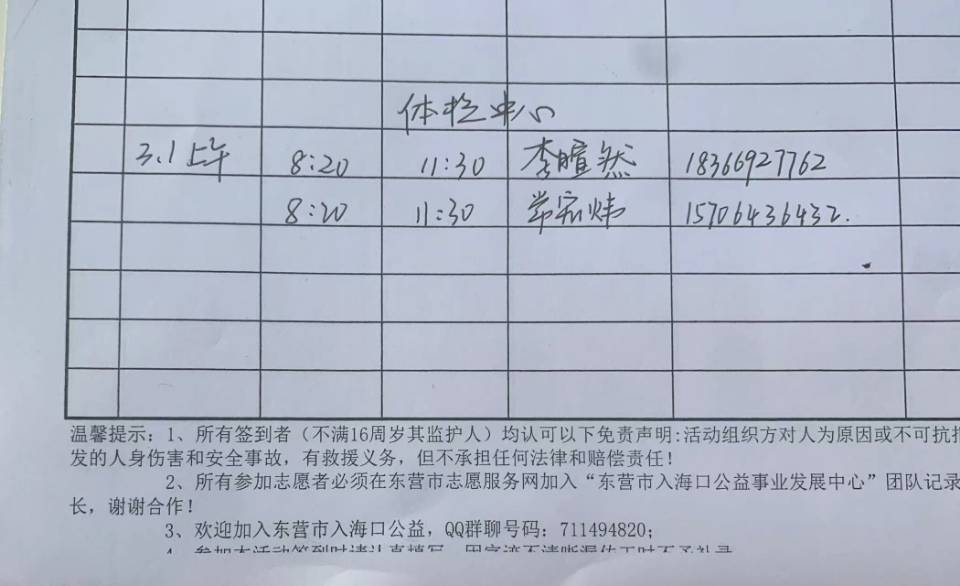 体检中心
3.1上午 8:20 11:30 李暄然 18366927762
8:20 11:30 常宏炜 15706436432.
温馨提示：1、所有签到者（不满16周岁其监护人）均认可以下免责声明:活动组织方对人为原因或不可抗
发的人身伤害和安全事故，有救援义务，但不承担任何法律和赔偿责任！
2、所有参加志愿者必须在东营市志愿服务网加入“东营市入海口公益事业发展中心”团队记录
长，谢谢合作！
3、欢迎加入东营市入海口公益，QQ群聊号码：711494820；